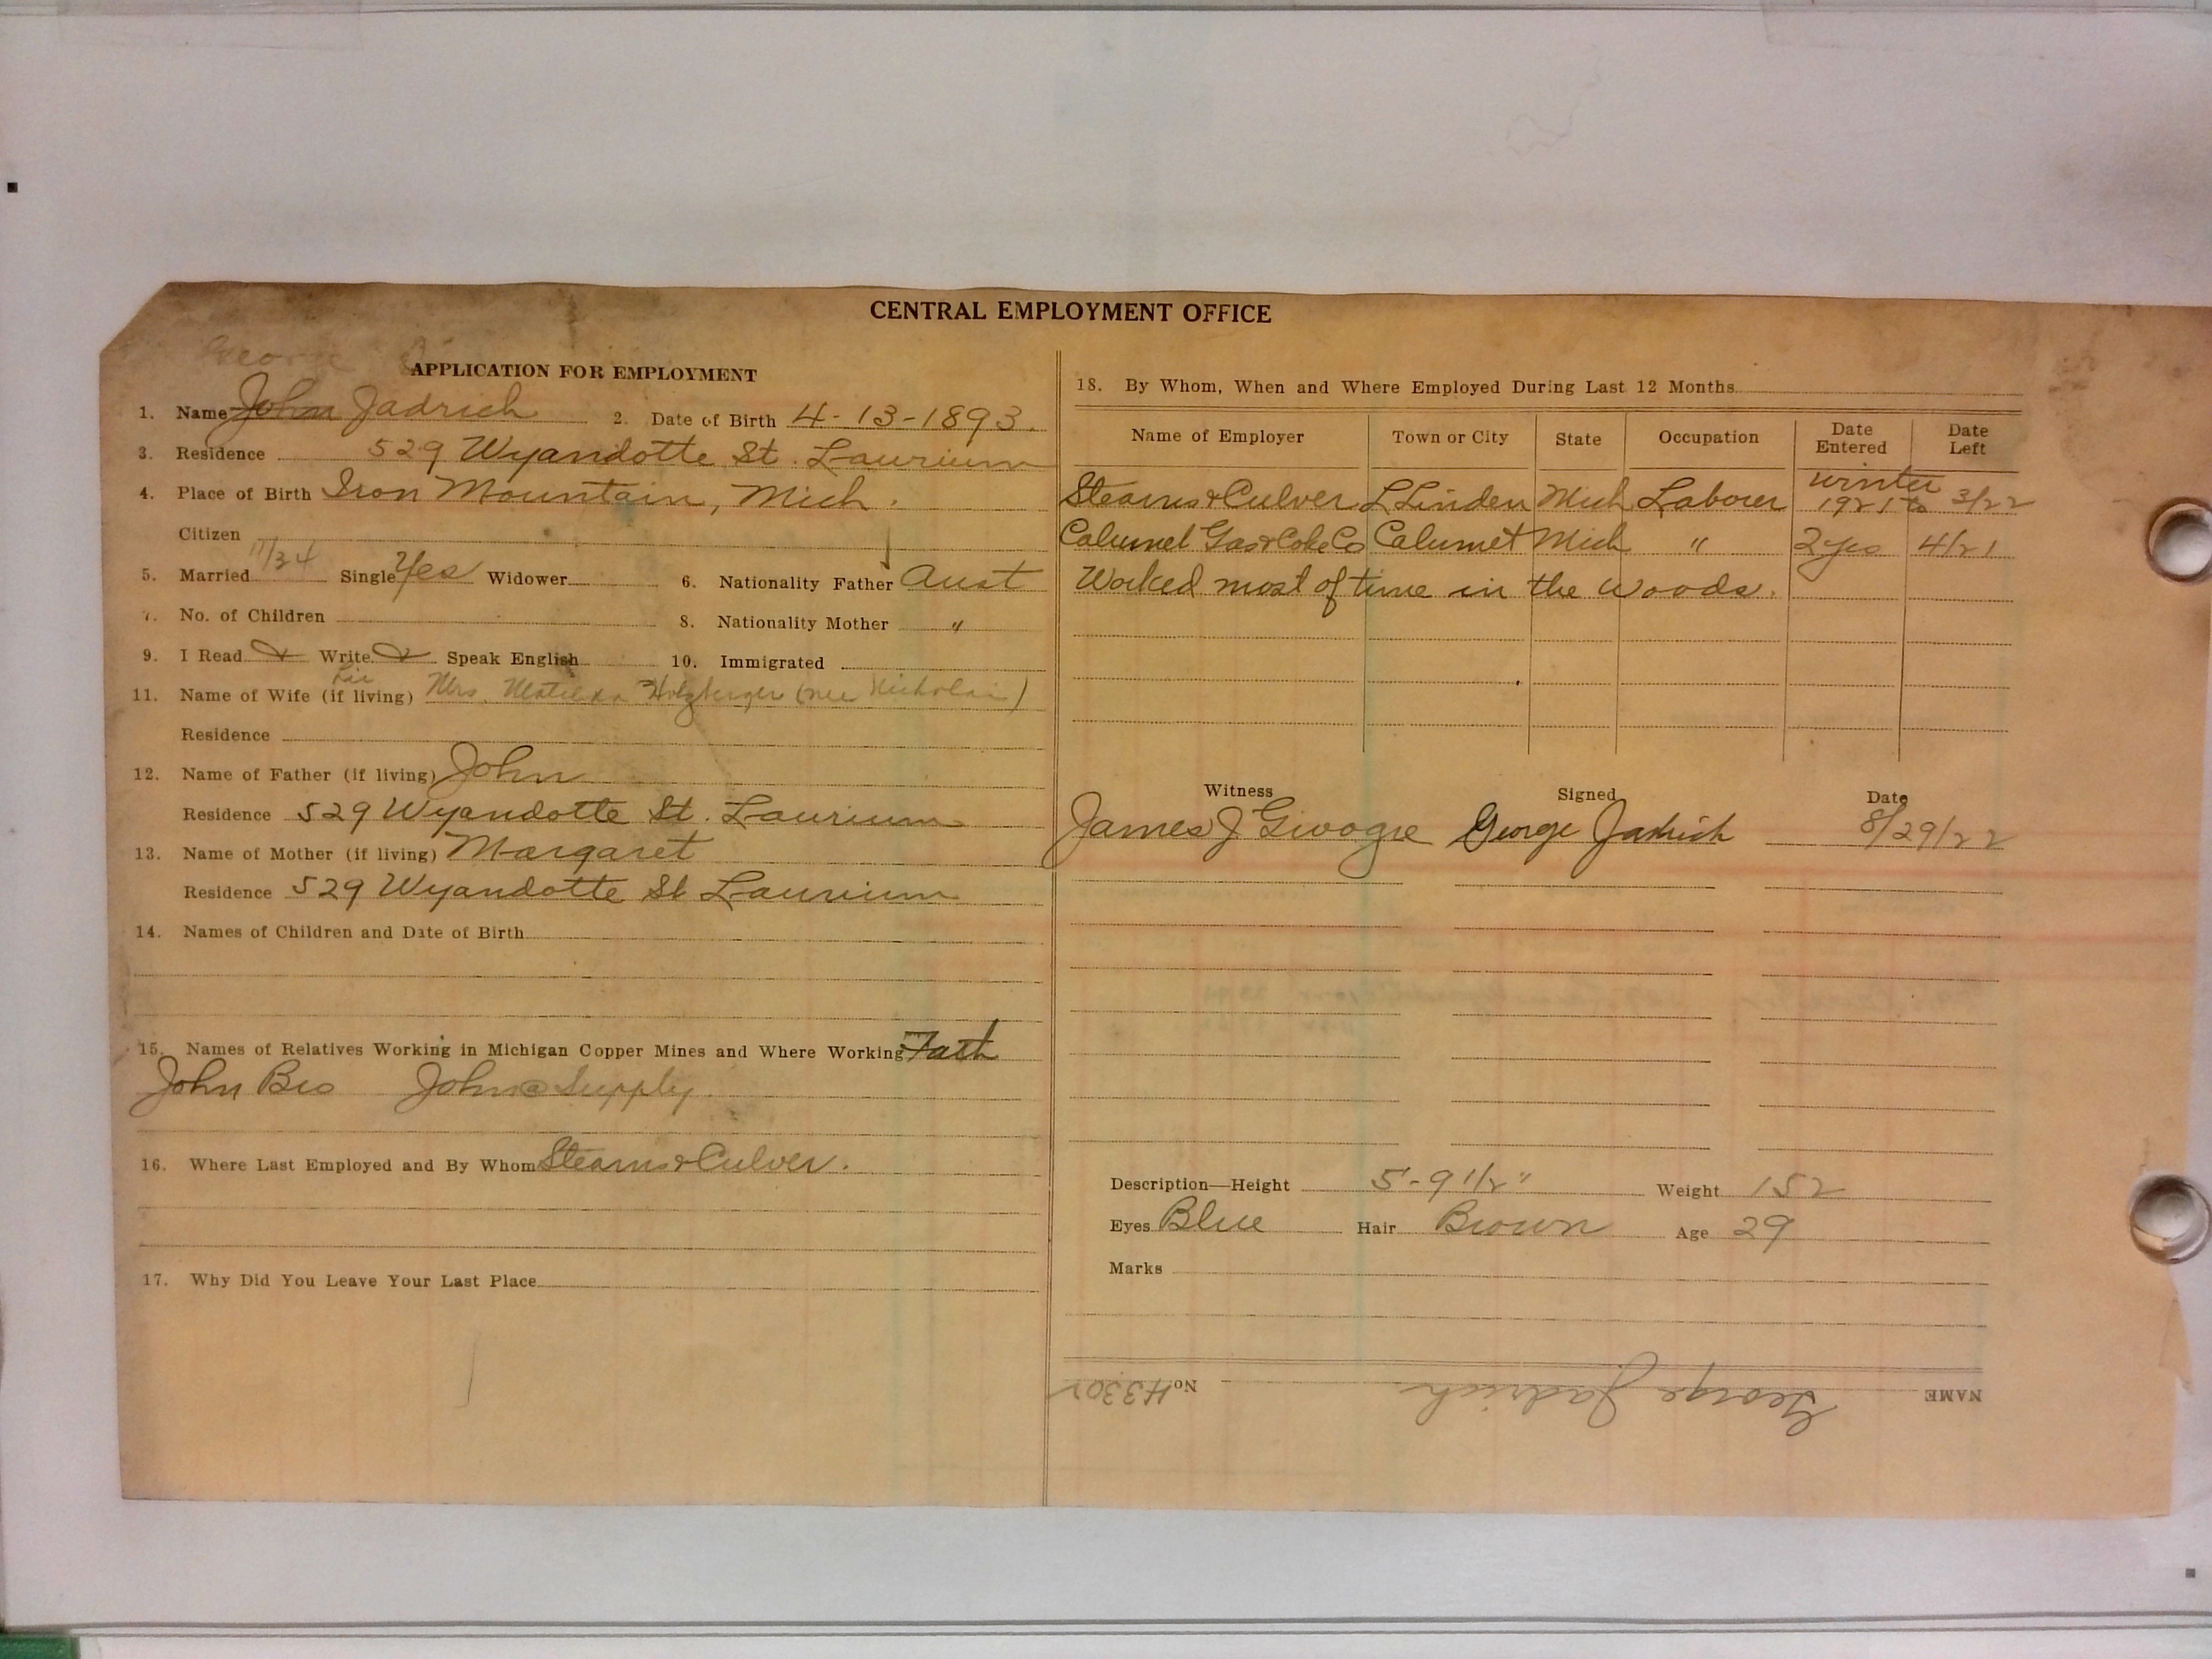 CENTRAL EMPLOYMENT OFFICE
George
APPLICATION FOR EMPLOYMENT
1. Name John Jadrich 2. Date of Birth 4-13-1893.
3. Residence 529 Wyandotte St. Laurium
4. Place of Birth Iron Mountain, Mich.
Citizen
5. Married 11/34 Single Yes Widower 6. Nationality Father Aust
7. No. of Children 8. Nationality Mother "
9. I Read Write Speak English 10. Immigrated
11. Name of Wife (if living) Mrs. Matilda Holzberger (nee Nicholai)
Residence
12. Name of Father (if living) John
Residence 529 Wyandotte St. Laurium
13. Name of Mother (if living) Margaret
Residence 529 Wyandotte St Laurium
14. Names of Children and Date of Birth
15. Names of Relatives Working in Michigan Copper Mines and Where Working Fath
John Bro John @ Supply.
16. Where Last Employed and By Whom Stearns & Culver.
17. Why Did You Leave Your Last Place
18. By Whom, When and Where Employed During Last 12 Months
Name of Employer Town or City State Occupation Date Entered Date Left
Stearns & Culver L Linden Mich Laborer winter 1921 to 3/22
Calumet Gas & Coke Co Calumet Mich " 2 yrs 4/21
Worked most of time in the Woods.
Witness Signed Date
James J George Jadrich 8/29/22
Description—Height 5-9 1/2" Weight 152
Eyes Blue Hair Brown Age 29
Marks
NAME George Jadrich No. H3302